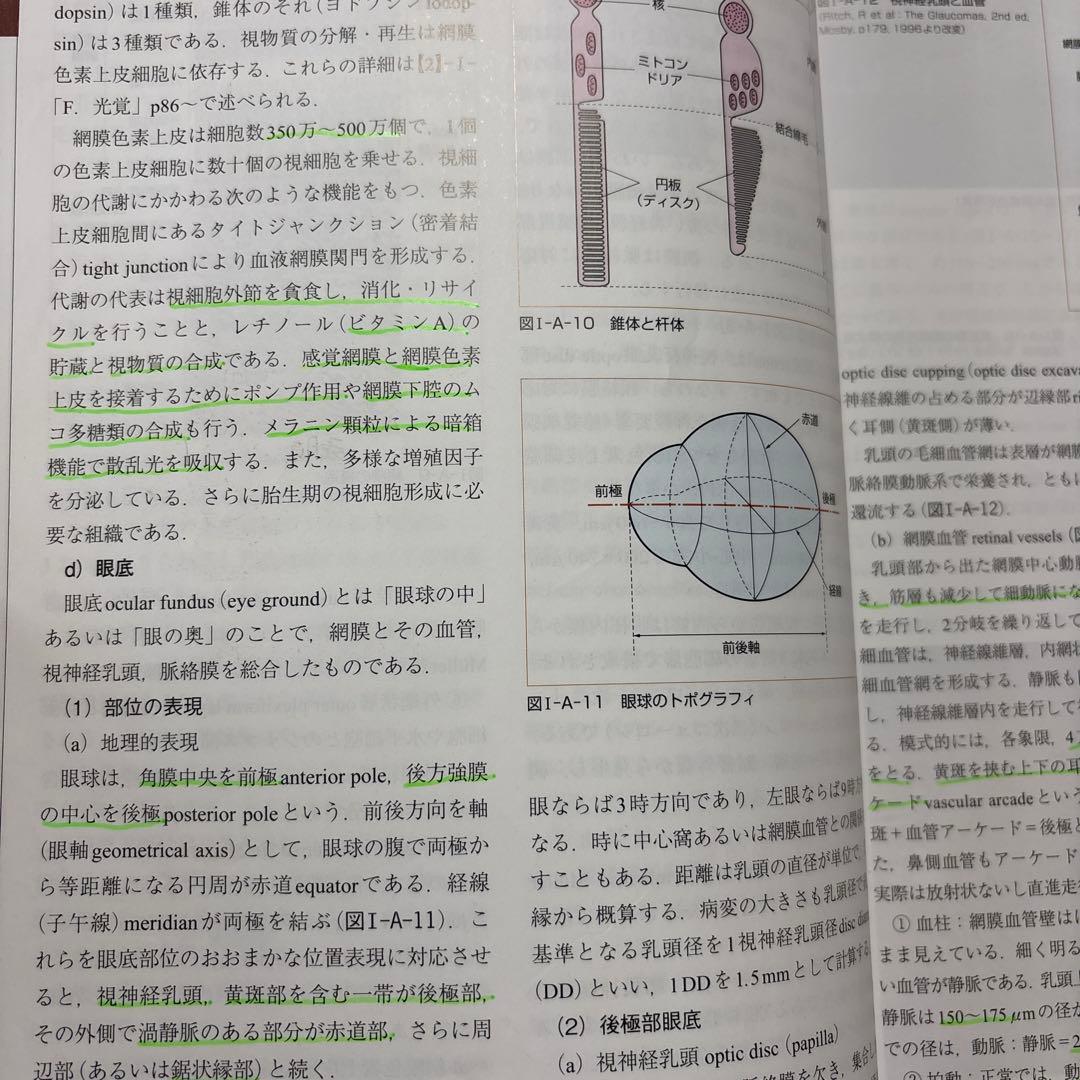 dopsin)は1種類，錐体のそれ(ヨドプシン iodop-
sin)は3種類である．視物質の分解・再生は網膜
色素上皮細胞に依存する．これらの詳細は【2】-Ⅰ-
「F．光覚」p86〜で述べられる．
網膜色素上皮は細胞数350万〜500万個で，1個
の色素上皮細胞に数十個の視細胞を乗せる．視細
胞の代謝にかかわる次のような機能をもつ．色素
上皮細胞間にあるタイトジャンクション(密着結
合)tight junctionにより血液網膜関門を形成する．
代謝の代表は視細胞外節を貪食し，消化・リサイ
クルを行うことと，レチノール(ビタミンA)の
貯蔵と視物質の合成である．感覚網膜と網膜色素
上皮を接着するためにポンプ作用や網膜下腔のム
コ多糖類の合成も行う．メラニン顆粒による暗箱
機能で散乱光を吸収する．また，多様な増殖因子
を分泌している．さらに胎生期の視細胞形成に必
要な組織である．
d) 眼底
眼底ocular fundus(eye ground)とは「眼球の中」
あるいは「眼の奥」のことで，網膜とその血管，
視神経乳頭，脈絡膜を総合したものである．
(1) 部位の表現
(a) 地理的表現
眼球は，角膜中央を前極anterior pole，後方強膜
の中心を後極posterior poleという．前後方向を軸
(眼軸geometrical axis)として，眼球の腹で両極か
ら等距離になる円周が赤道equatorである．経線
(子午線)meridianが両極を結ぶ(図Ⅰ-A-11)．こ
れらを眼底部位のおおまかな位置表現に対応させ
ると，視神経乳頭，黄斑部を含む一帯が後極部，
その外側で渦静脈のある部分が赤道部，さらに周
辺部(あるいは鋸状縁部)と続く．
核
ミトコン
ドリア
内節
結合線毛
円板
(ディスク)
外節
図Ⅰ-A-10 錐体と杆体
赤道
前極
後極
経線
前後軸
図Ⅰ-A-11 眼球のトポグラフィ
眼ならば3時方向であり，左眼ならば9時方
なる．時に中心窩あるいは網膜血管との関係
すこともある．距離は乳頭の直径が単位で，
縁から概算する．病変の大きさも乳頭径で
基準となる乳頭径を1視神経乳頭径disc diam
(DD)といい，1DDを1.5mmとして計算する
(2) 後極部眼底
(a) 視神経乳頭 optic disc(papilla)
膜を欠き，集合し
図Ⅰ-A-12 視神経乳頭と血管
(Ritch, R et al : The Glaucomas, 2nd ed,
Mosby, p179, 1996より改変)
網膜
optic disc cupping(optic disc excava
神経線維の占める部分が辺縁部ri
く耳側(黄斑側)が薄い．
乳頭の毛細血管網は表層が網膜
脈絡膜動脈系で栄養され，ともに
還流する(図Ⅰ-A-12)．
(b) 網膜血管 retinal vessels(図
乳頭部から出た網膜中心動脈
き，筋層も減少して細動脈にな
を走行し，2分岐を繰り返して
細血管は，神経線維層，内網状
細血管網を形成する．静脈も
し，神経線維層内を走行して
る．模式的には，各象限，4
をとる．黄斑を挟む上下の耳
ケードvascular arcadeという
斑＋血管アーケード＝後極と
た，鼻側血管もアーケード
実際は放射状ないし直進走行
① 血柱：網膜血管壁は
まま見えている．細く明る
い血管が静脈である．乳頭上
静脈は150〜175μmの径が
での径は，動脈：静脈＝2
② 拍動：正常では，動